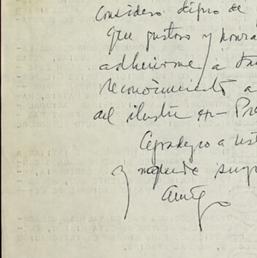 Considero digno de
que gustoso y honra
adherirme a tan
reconocimiento a
del ilustre ex-Pre
Agradezco a ust
y
amigo